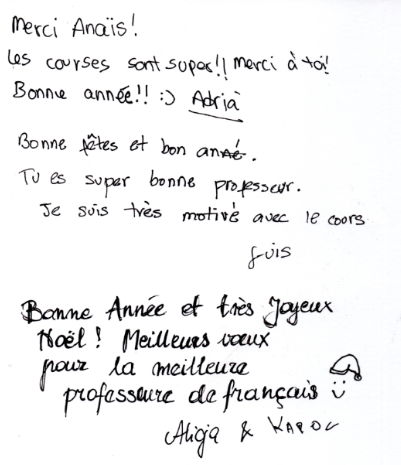 Merci Anaïs!
Les courses sont super!! Merci à toi!
Bonne année!! :) Adrià
Bonne fêtes et bon anné.
Tu es super bonne professeur.
Je suis très motivé avec le cours
Bonne Année et très Joyeux
Noël! Meilleurs voeux
pour la meilleure
professeure de français
Alicja & Karol